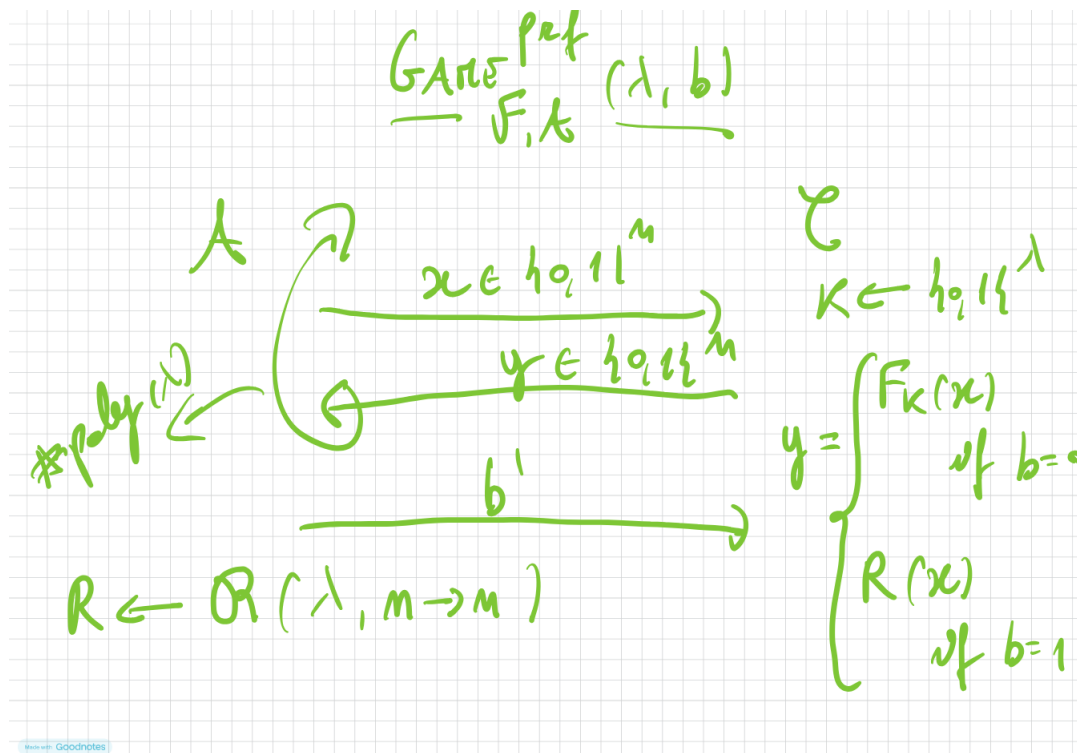 GAME^prf_F,A (λ, b)
A
C
x ∈ {0,1}^n
K ← {0,1}^λ
y ∈ {0,1}^n
# poly(λ)
y = { F_K(x)
if b=0
R(x)
if b=1
b'
R ← R(λ, n→n)
Made with Goodnotes